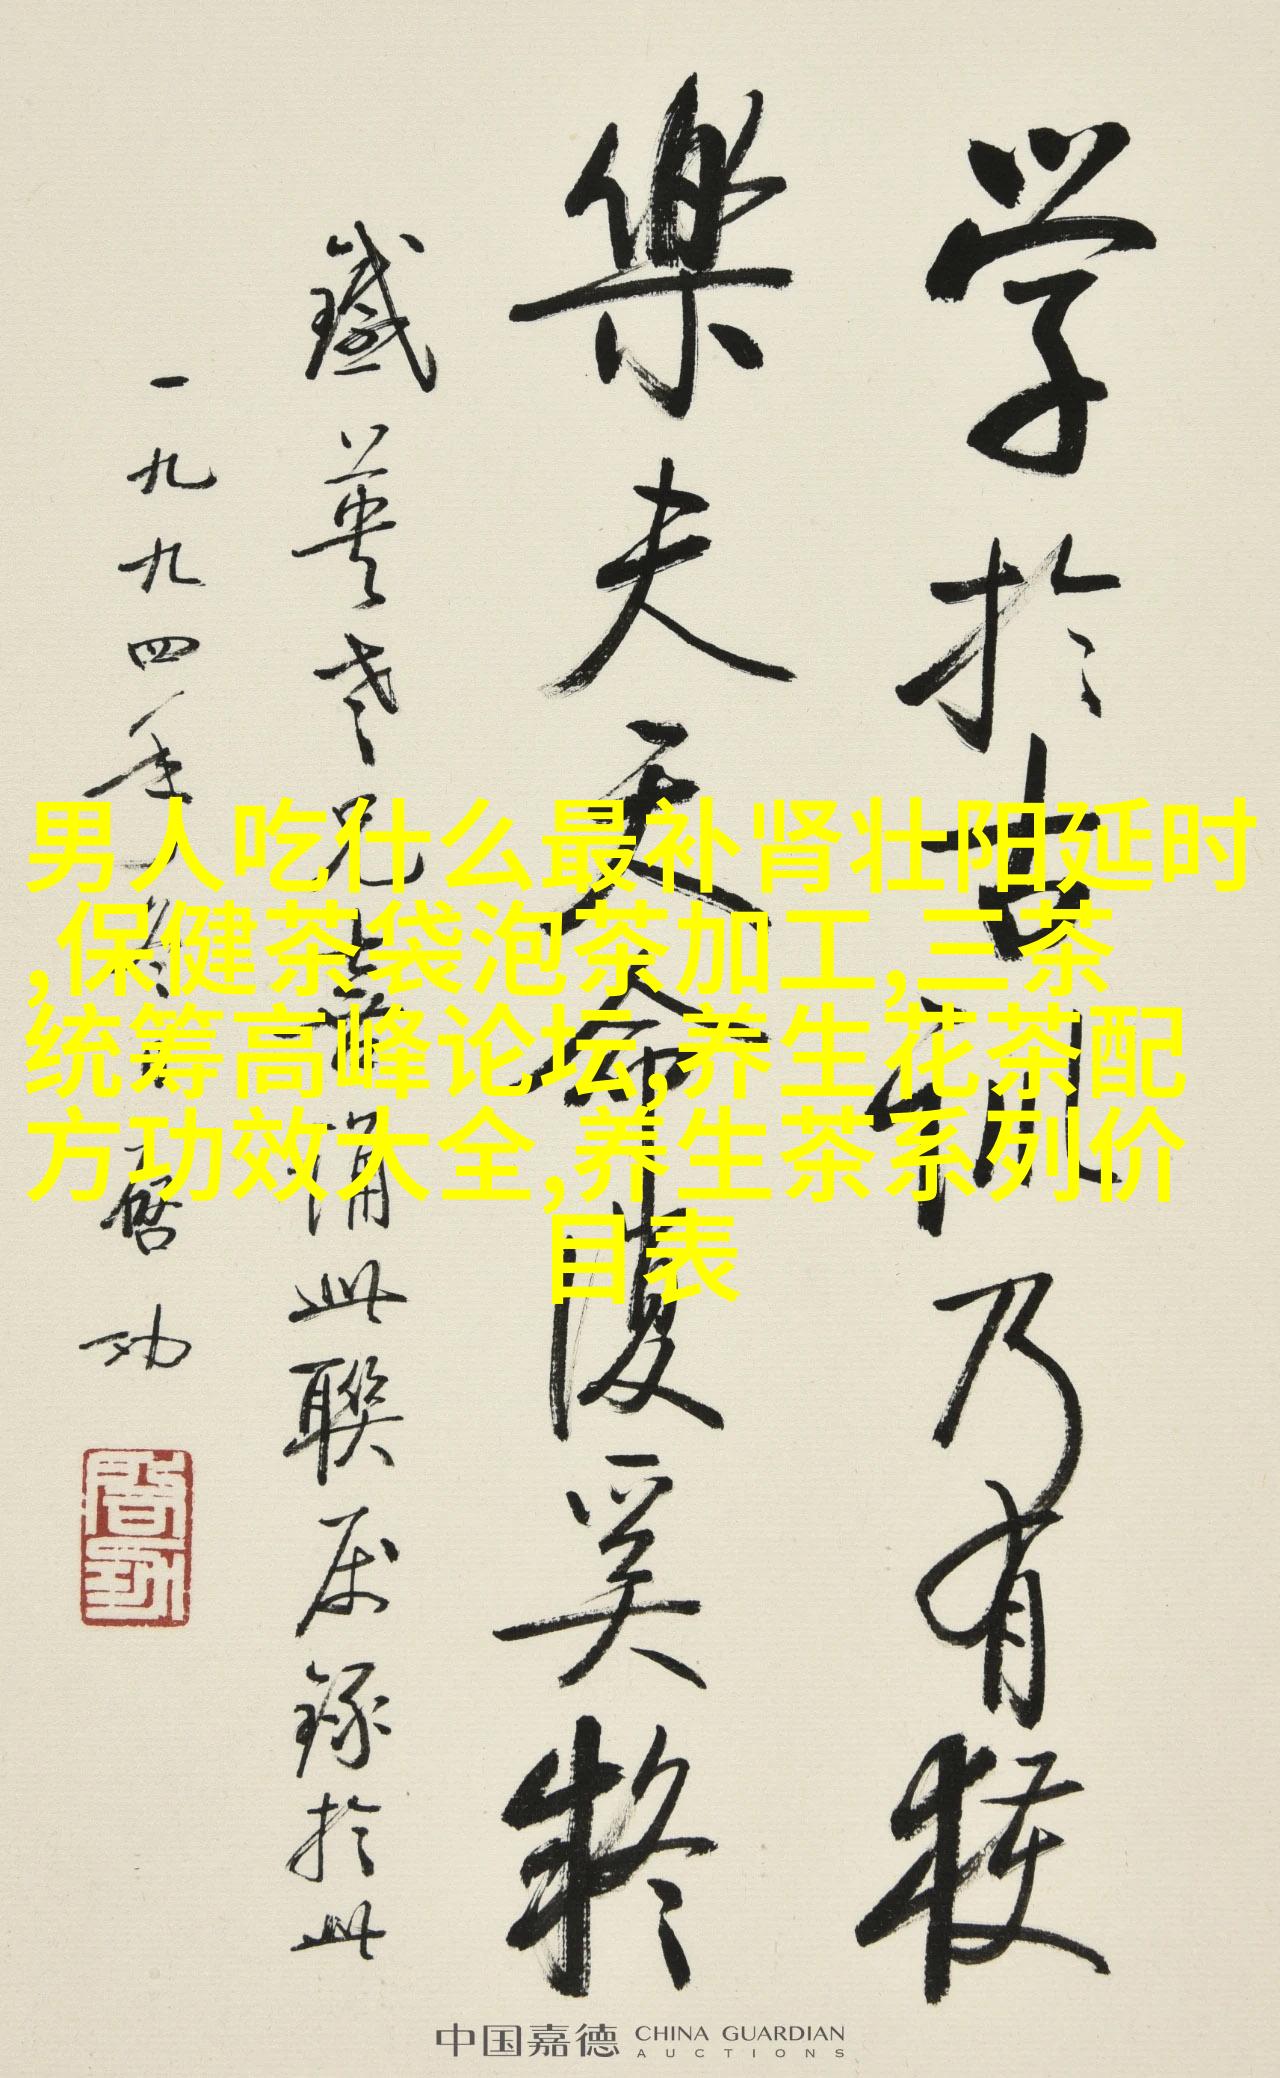 学於古訓乃有獲
樂夫天命復奚疑
鐵英老兄喜誦此聯属錄於此
一九九四年冬 启功
男人吃什么最补肾壮阳延时
,保健茶袋泡茶加工,三茶
统筹高峰论坛,养生花茶配
方功效大全,养生茶系列价
目表
中国嘉德 CHINA GUARDIAN
AUCTIONS